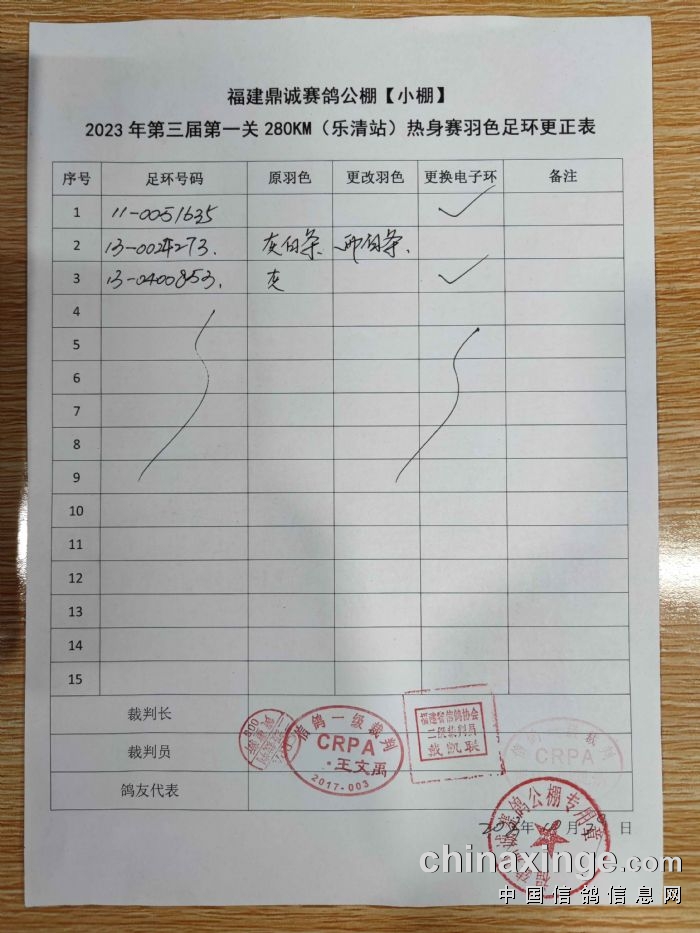 福建鼎诚赛鸽公棚【小棚】
2023年第三届第一关280KM（乐清站）热身赛羽色足环更正表
序号 足环号码 原羽色 更改羽色 更换电子环 备注
1 11-0051635 ✓
2 13-0024273. 灰白条. 雨白条.
3 13-0400853. 灰 ✓
4
5
6
7
8
9
10
11
12
13
14
15
裁判长
裁判员
鸽友代表
信鸽一级裁判
CRPA
·王文禹
2017-003
福建省信鸽协会
二级裁判员
戴凯联
裁判
CRPA
赛鸽公棚专用章
年 月 日
chinaxinge.com
中国信鸽信息网